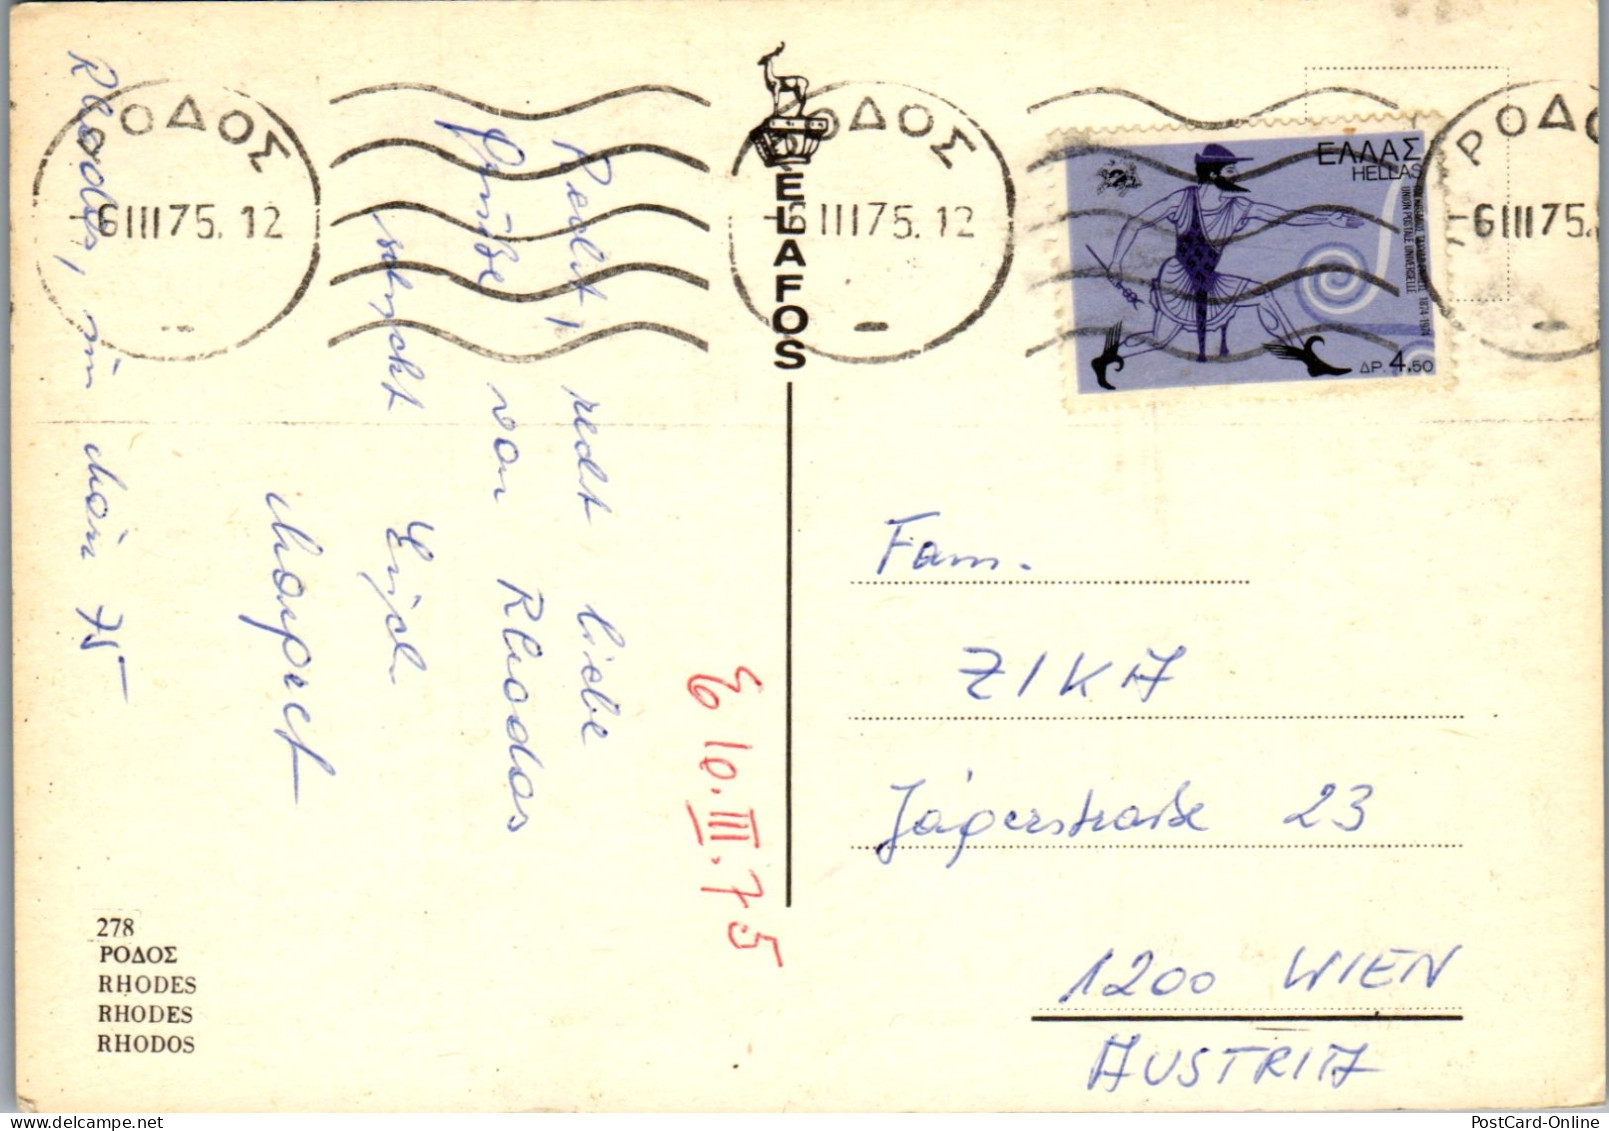 Rhodos, im März 75
Recht, recht liebe
Grüße von Rhodos
wünscht Euch
Margret
E 10.III.75
278
ΡΟΔΟΣ
RHODES
RHODES
RHODOS
ELAFOS
ΡΟΔΟΣ
-6 III 75. 12
ΡΟΔΟΣ
-6 III 75. 12
ΡΟΔΟΣ
-6 III 75.
ΕΛΛΑΣ
HELLAS
UNION POSTALE UNIVERSELLE 1874-1974
ΔΡ. 4.50
Fam.
ZIKA
Jägerstraße 23
1200 WIEN
AUSTRIA
PostCard-Online